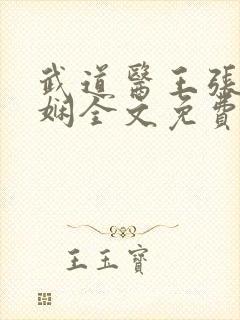 武道醫王張
娴全文免費
王玉寶